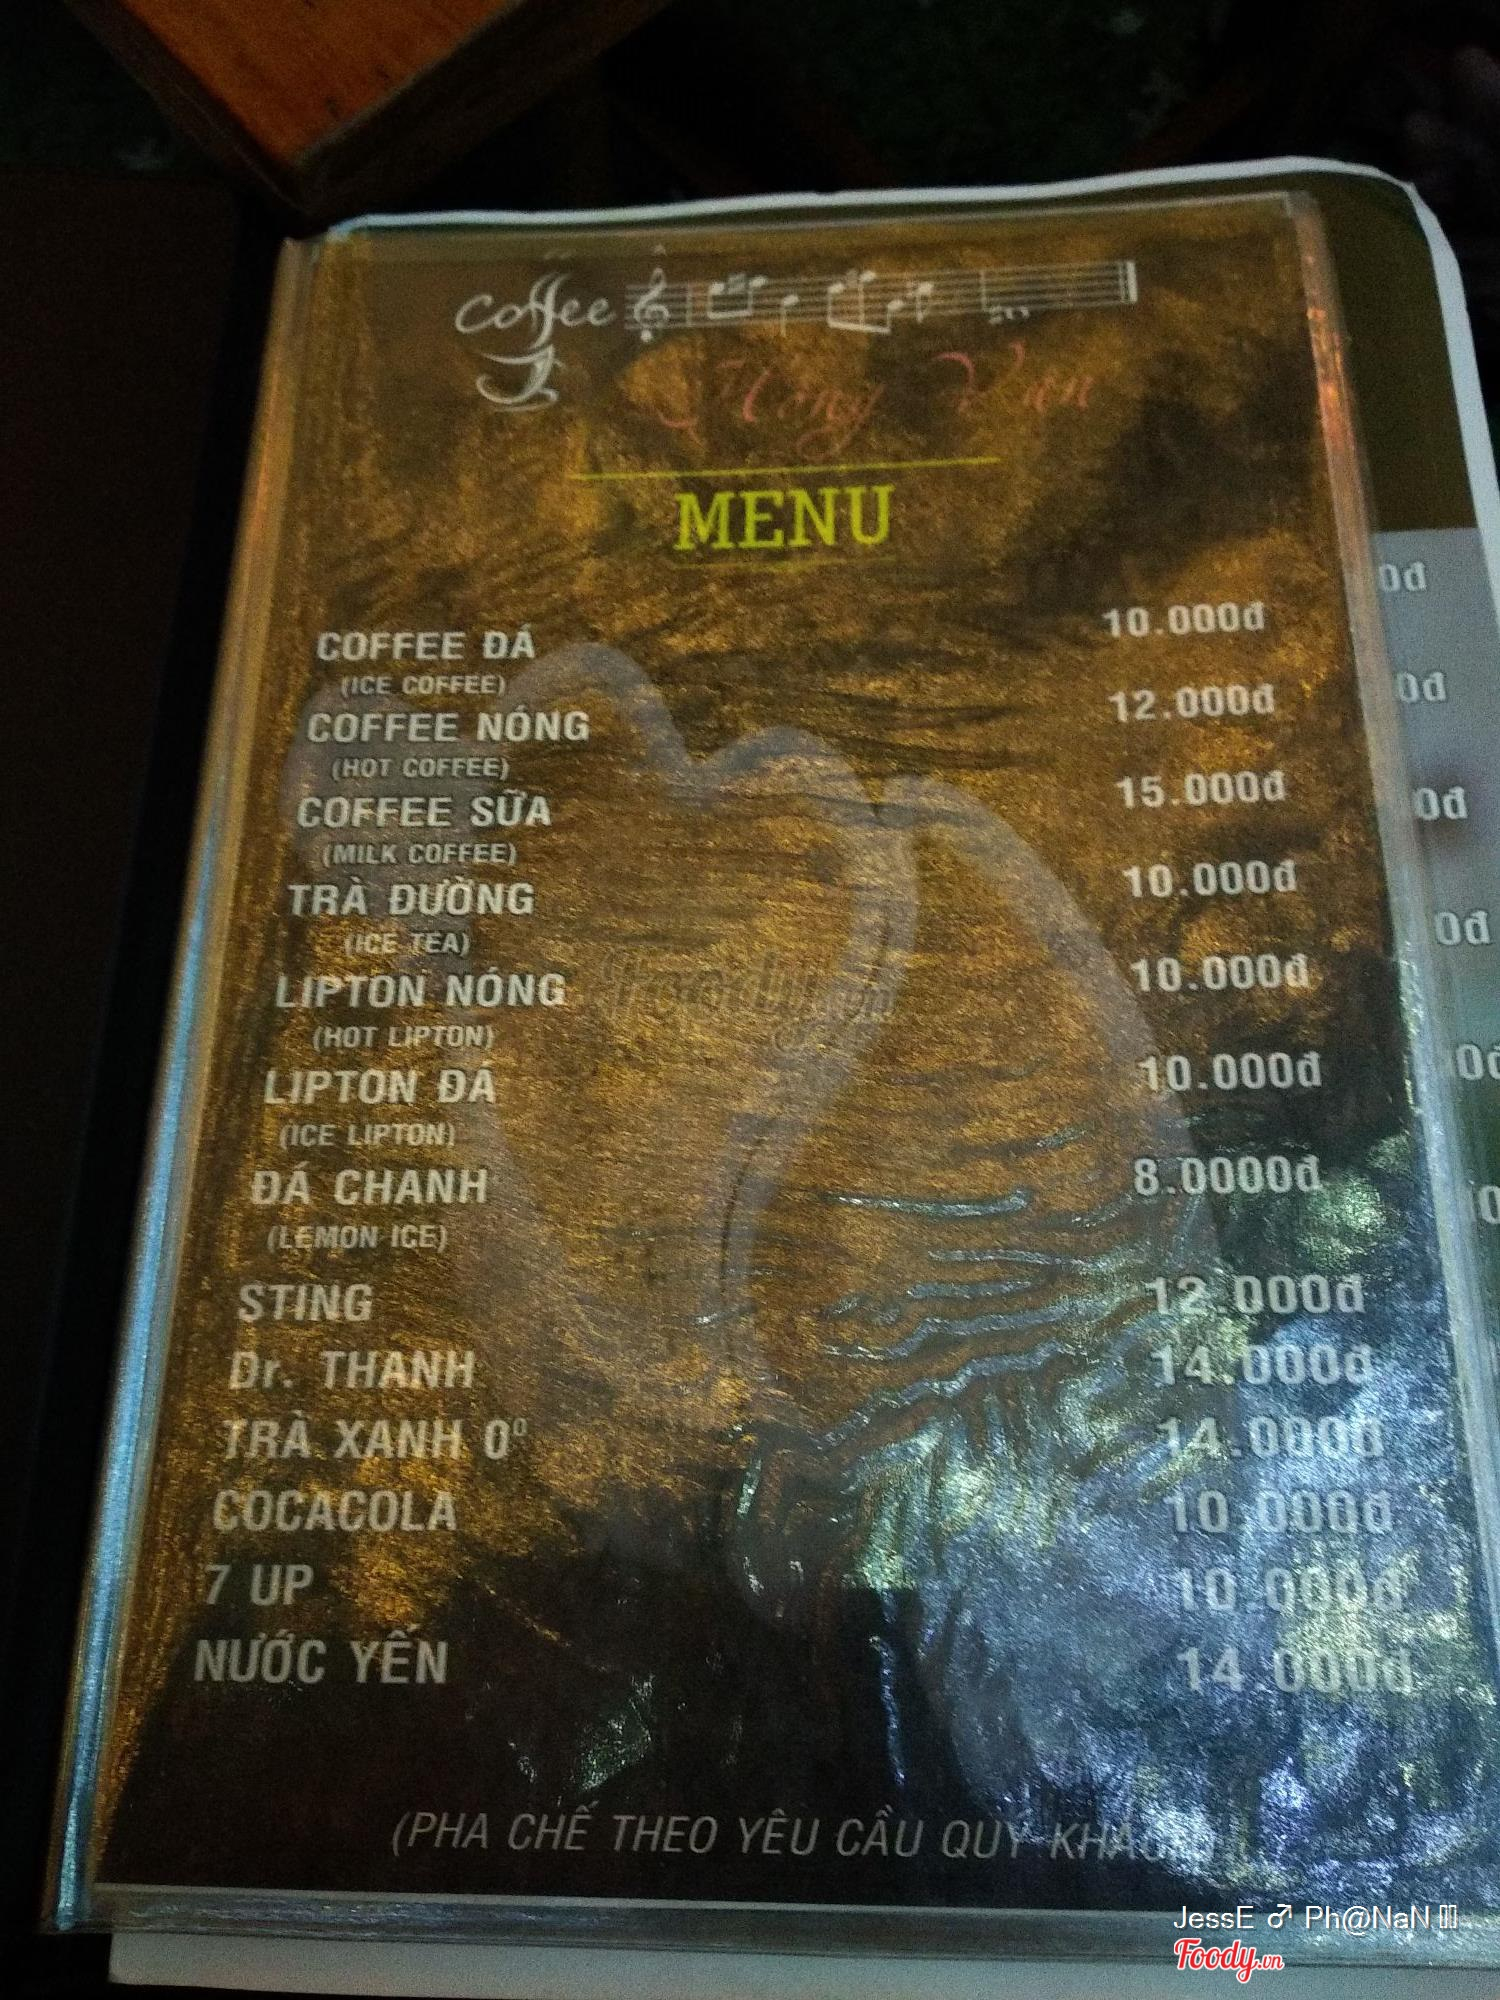 Coffee
MENU
COFFEE ĐÁ 10.000đ
(ICE COFFEE)
COFFEE NÓNG 12.000đ
(HOT COFFEE)
COFFEE SỮA 15.000đ
(MILK COFFEE)
TRÀ ĐƯỜNG 10.000đ
(ICE TEA)
LIPTON NÓNG 10.000đ
(HOT LIPTON)
LIPTON ĐÁ 10.000đ
(ICE LIPTON)
ĐÁ CHANH 8.0000đ
(LEMON ICE)
STING 12.000đ
Dr. THANH 14.000đ
TRÀ XANH 0⁰ 14.000đ
COCACOLA 10.000đ
7 UP 10.000đ
NƯỚC YẾN 14.000đ
(PHA CHẾ THEO YÊU CẦU QUÝ
JessE ♂ Ph@NaN
Foody.vn